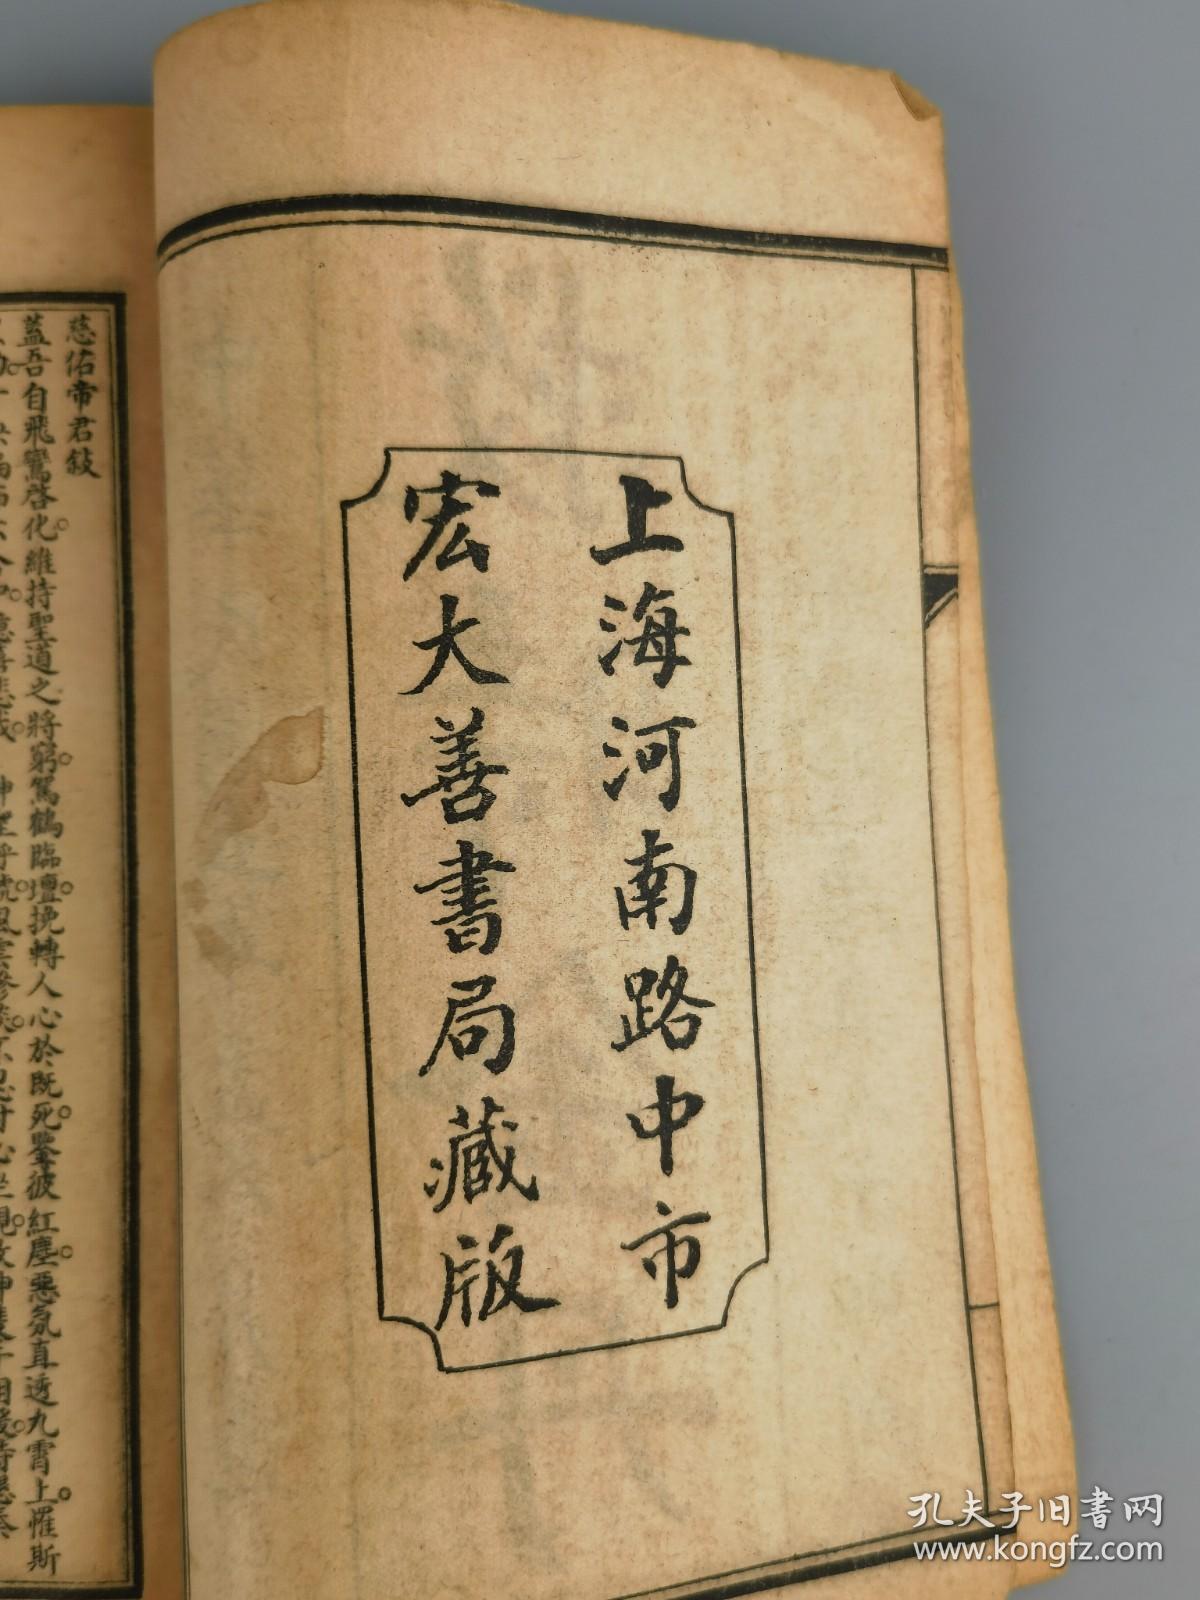 上海河南路中市
宏大善書局藏版
慈佑帝君敍
蓋吾自飛鸞啓化維持聖道之將窮駕鶴臨壇挽轉人心於既死鑒彼紅塵惡氛直透九霄上罹斯
孔夫子旧书网
www.kongfz.com